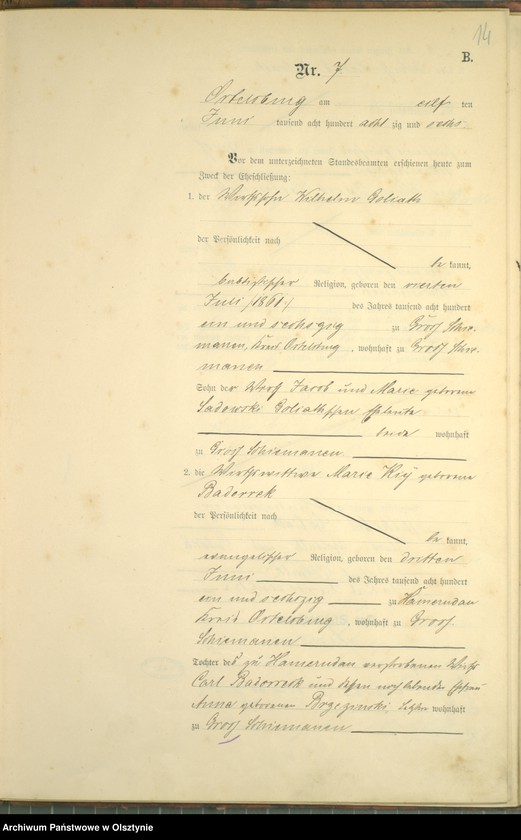 14
B.
Nr. 7
Ortelsburg am elf ten
Juni tausend acht hundert acht zig und sechs
Vor dem unterzeichneten Standesbeamten erschienen heute zum
Zweck der Eheschließung:
1. der Wirthssohn Wilhelm Goliath
der Persönlichkeit nach
be kannt,
baptistischer Religion, geboren den vierten
Juli /1861/ des Jahres tausend acht hundert
ein und sechszig zu Groß Schie-
manen, Kreis Ortelsburg, wohnhaft zu Groß Schie-
manen
Sohn der Wirth Jacob und Marie geborene
Sadowski Goliathschen Eheleute
beide wohnhaft
zu Groß Schiemanen
2. die Wirthswittwe Marie Kij geborene
Badorrek
der Persönlichkeit nach
be kannt,
evangelischer Religion, geboren den dritten
Juni des Jahres tausend acht hundert
ein und sechszig zu Hamerudau
Kreis Ortelsburg, wohnhaft zu Groß
Schiemanen
Tochter des zu Hamerudau verstorbenen Wirths
Carl Badorreck und dessen noch lebenden Ehefrau
Anna geborenen Brzezinski, Letztere wohnhaft
zu Groß Schiemanen
Archiwum Państwowe w Olsztynie